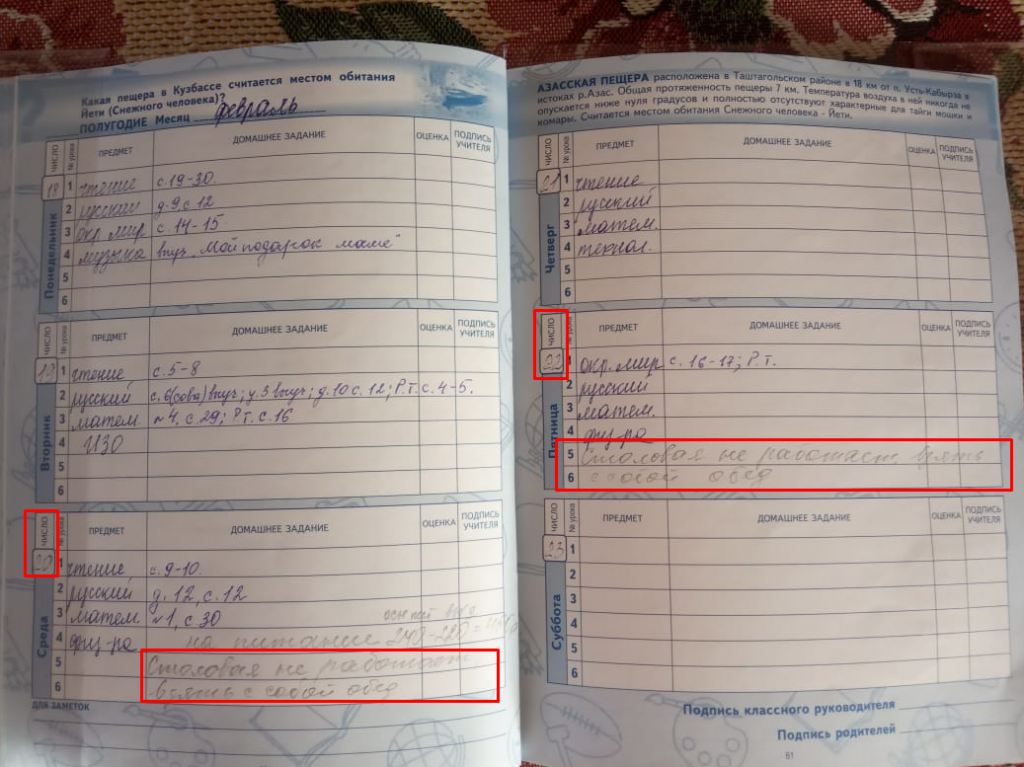 Какая пещера в Кузбассе считается местом обитания
Йети (Снежного человека)?
ПОЛУГОДИЕ Месяц февраль
ЧИСЛО № урока ПРЕДМЕТ ДОМАШНЕЕ ЗАДАНИЕ ОЦЕНКА ПОДПИСЬ УЧИТЕЛЯ
Понедельник
18 1 чтение с. 19-30.
2 русский д. 9, с 12
3 окр. мир с. 14-15
4 музыка выуч. „Мой подарок маме"
5
6
ЧИСЛО № урока ПРЕДМЕТ ДОМАШНЕЕ ЗАДАНИЕ ОЦЕНКА ПОДПИСЬ УЧИТЕЛЯ
Вторник
19 1 чтение с. 5-8
2 русский с. 6(сова) выуч; у.3 выуч; д. 10 с. 12; Р.т. с. 4-5.
3 матем ~4, с 29; Р.т. с. 16
4 ИЗО
5
6
ЧИСЛО № урока ПРЕДМЕТ ДОМАШНЕЕ ЗАДАНИЕ ОЦЕНКА ПОДПИСЬ УЧИТЕЛЯ
Среда
20 1 чтение с. 9-10.
2 русский д. 12, с. 12
3 матем ~1, с 30
4 физ-ра на питание 248-220
5 Столовая не работает,
6 взять с собой обед
ДЛЯ ЗАМЕТОК
АЗАССКАЯ ПЕЩЕРА расположена в Таштагольском районе в 18 км от п. Усть-Кабырза в
истоках р.Азас. Общая протяженность пещеры 7 км. Температура воздуха в ней никогда не
опускается ниже нуля градусов и полностью отсутствуют характерные для тайги мошки и
комары. Считается местом обитания Снежного человека - Йети.
ЧИСЛО № урока ПРЕДМЕТ ДОМАШНЕЕ ЗАДАНИЕ ОЦЕНКА ПОДПИСЬ УЧИТЕЛЯ
Четверг
21 1 чтение
2 русский
3 матем.
4 технол.
5
6
ЧИСЛО № урока ПРЕДМЕТ ДОМАШНЕЕ ЗАДАНИЕ ОЦЕНКА ПОДПИСЬ УЧИТЕЛЯ
Пятница
22 1 окр. мир с. 16-17; Р.Т.
2 русский
3 матем.
4 физ-ра
5 Столовая не работает, взять
6 с собой обед
ЧИСЛО № урока ПРЕДМЕТ ДОМАШНЕЕ ЗАДАНИЕ ОЦЕНКА ПОДПИСЬ УЧИТЕЛЯ
Суббота
23 1
2
3
4
5
6
Подпись классного руководителя
Подпись родителей
61